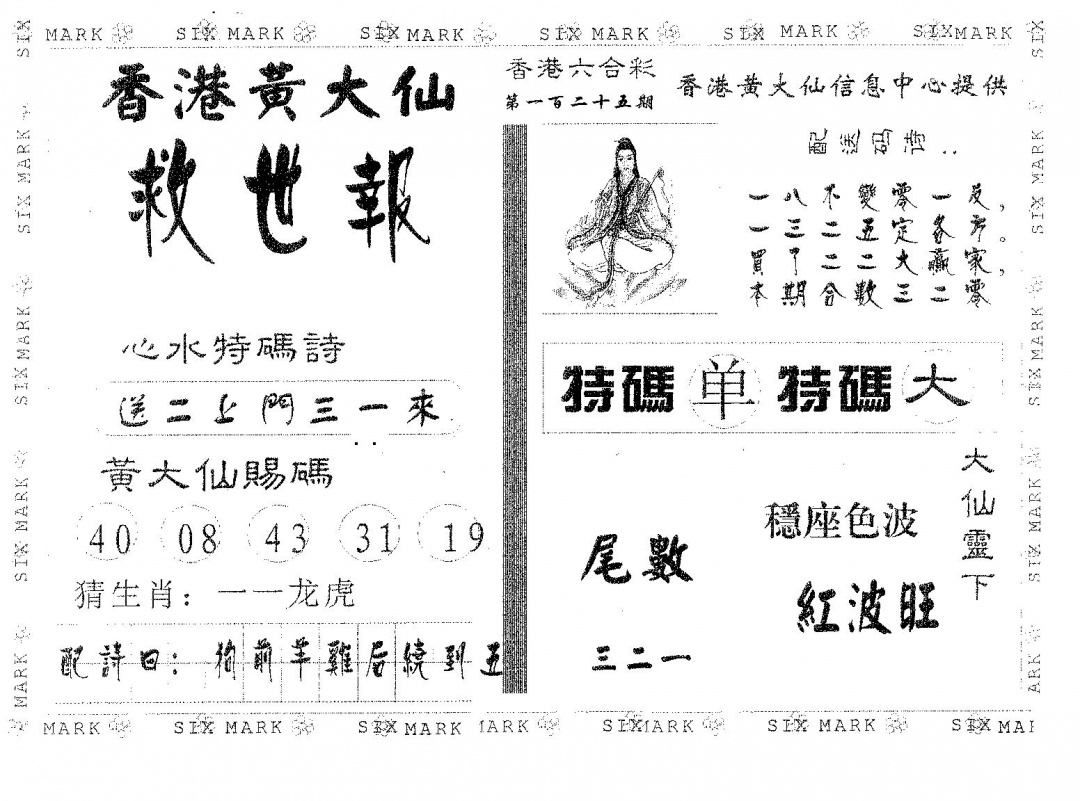 SIX MARK SIX MARK SIX MARK SIX MARK SIX MARK SIX MARK
香港黃大仙
救世報
心水特碼詩
送二上門三一來
黃大仙賜碼
40 08 43 31 19
猜生肖：一一龙虎
配詩曰：狗前羊雞后繞到五
香港六合彩
第一百二十五期
香港黄大仙信息中心提供
配送码诗：
一八不變零一反，
一三二五定各方。
買了二二大贏家，
本期合數三二零
特碼单特碼大
大仙靈下
穩座色波
紅波旺
尾數
三二一
MARK SIX MARK SIX MARK MARK SIX MARK SIX MARK SIX MAR